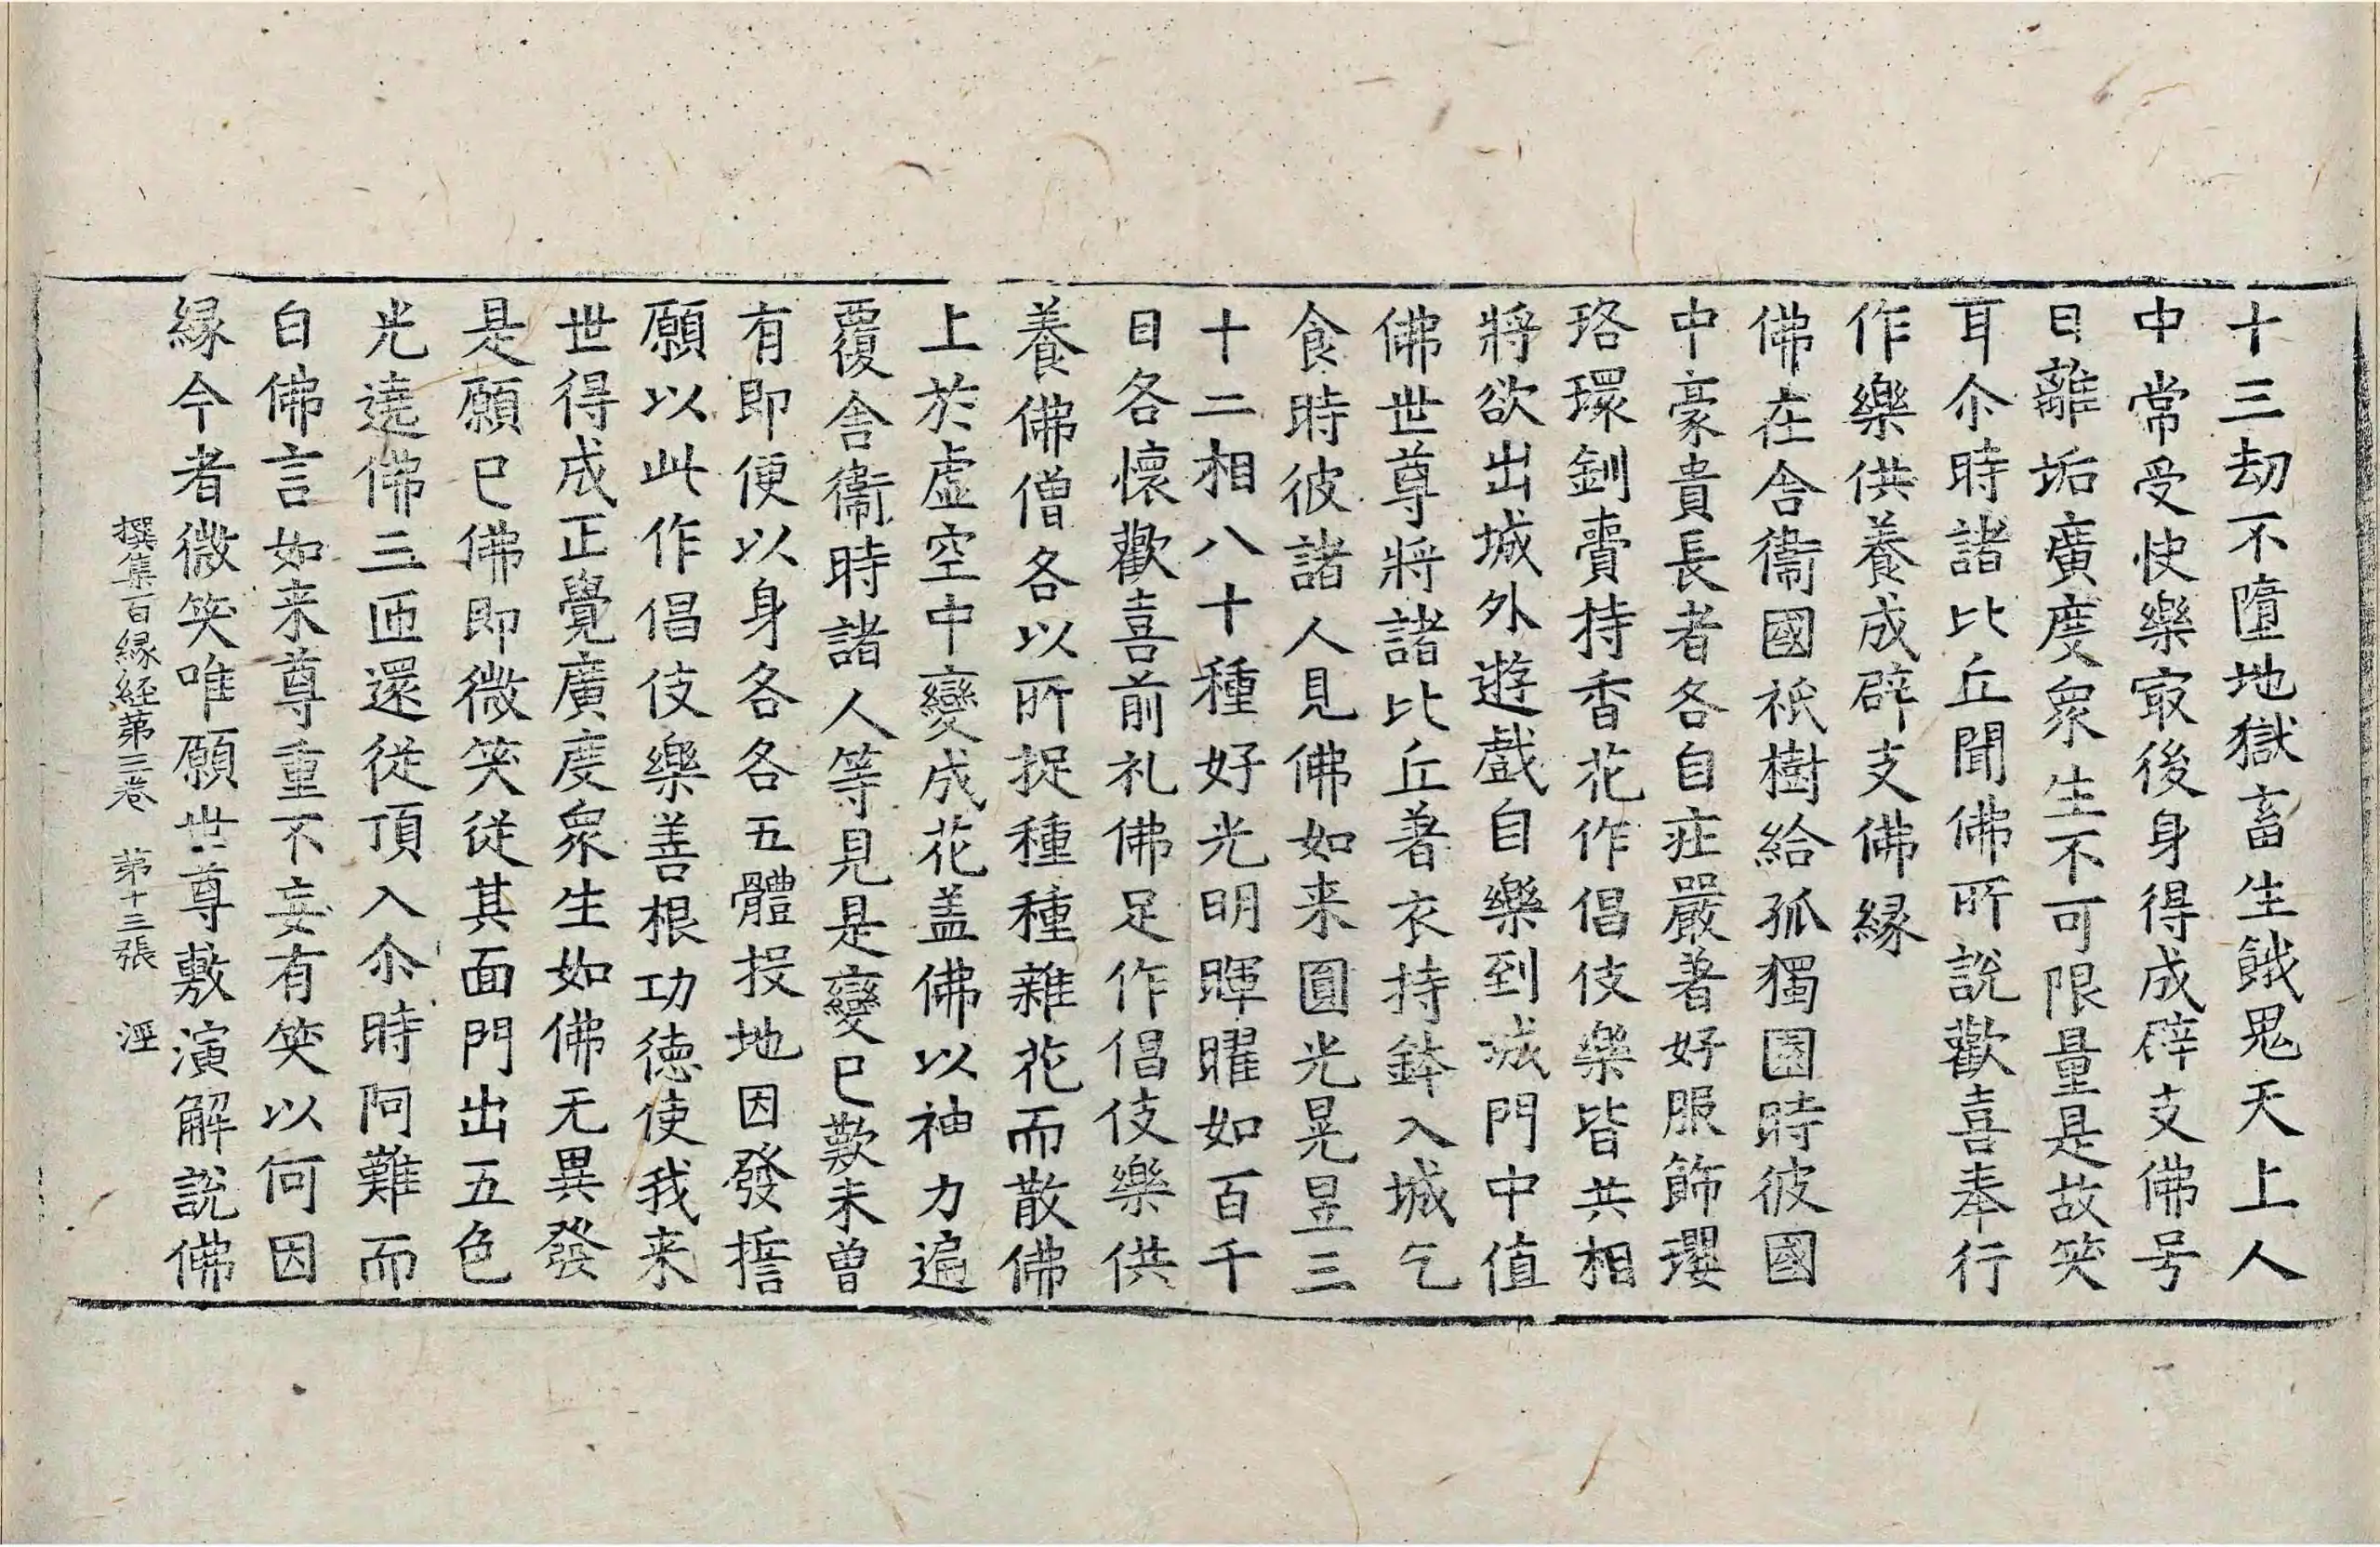 十三劫不墮地獄畜生餓鬼天上人
中常受快樂㝡後身得成辟支佛号
曰離垢廣度衆生不可限量是故笑
耳尒時諸比丘聞佛所說歡喜奉行
作樂供養成辟支佛緣
佛在舍衞國祇樹給孤獨園時彼國
中豪貴長者各自疘嚴著好服飾瓔
珞環釧賷持香花作倡伎樂皆共相
將欲出城外遊戲自樂到城門中值
佛世尊將諸比丘著衣持鉢入城乞
食時彼諸人見佛如来圓光晃昱三
十二相八十種好光明暉曜如百千
日各懷歡喜前礼佛足作倡伎樂供
養佛僧各以所捉種種雜花而散佛
上於虛空中變成花盖佛以神力遍
覆舍衞時諸人等見是變已歎未曾
有即便以身各各五體投地因發擔
願以此作倡伎樂善根功德使我来
世得成正覺廣度衆生如佛无異發
是願已佛即微笑從其面門出五色
光遶佛三匝還從頂入尒時阿難而
白佛言如来尊重不妄有笑以何因
緣今者微笑唯願世尊敷演解說佛
撰集百緣経苐三卷 苐十三張 溼